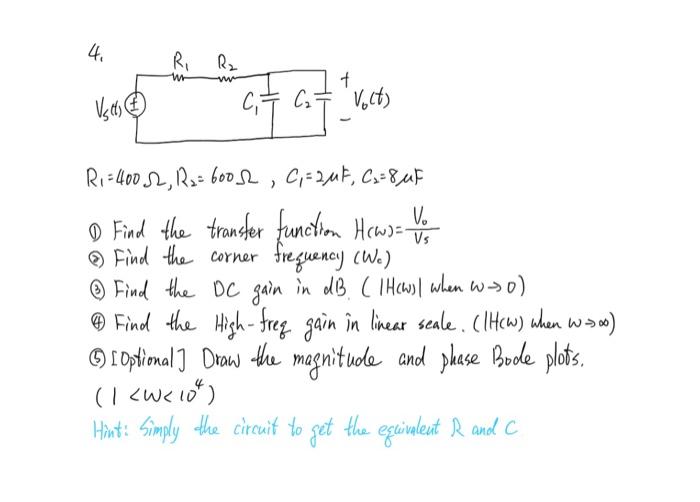 4.
R₁ R₂
Vs(t) C₁ C₂ + Vo(t) -
R₁=400Ω, R₂=600Ω, C₁=2μF, C₂=8μF
① Find the transfer function H(w)=Vo/Vs
② Find the corner frequency (Wc)
③ Find the DC gain in dB. (|H(w)| when w→0)
④ Find the High-freq gain in linear scale. (|H(w) when w→∞)
⑤ [Optional] Draw the magnitude and phase Bode plots.
(1<w<10⁴)
Hint: Simply the circuit to get the equivalent R and C